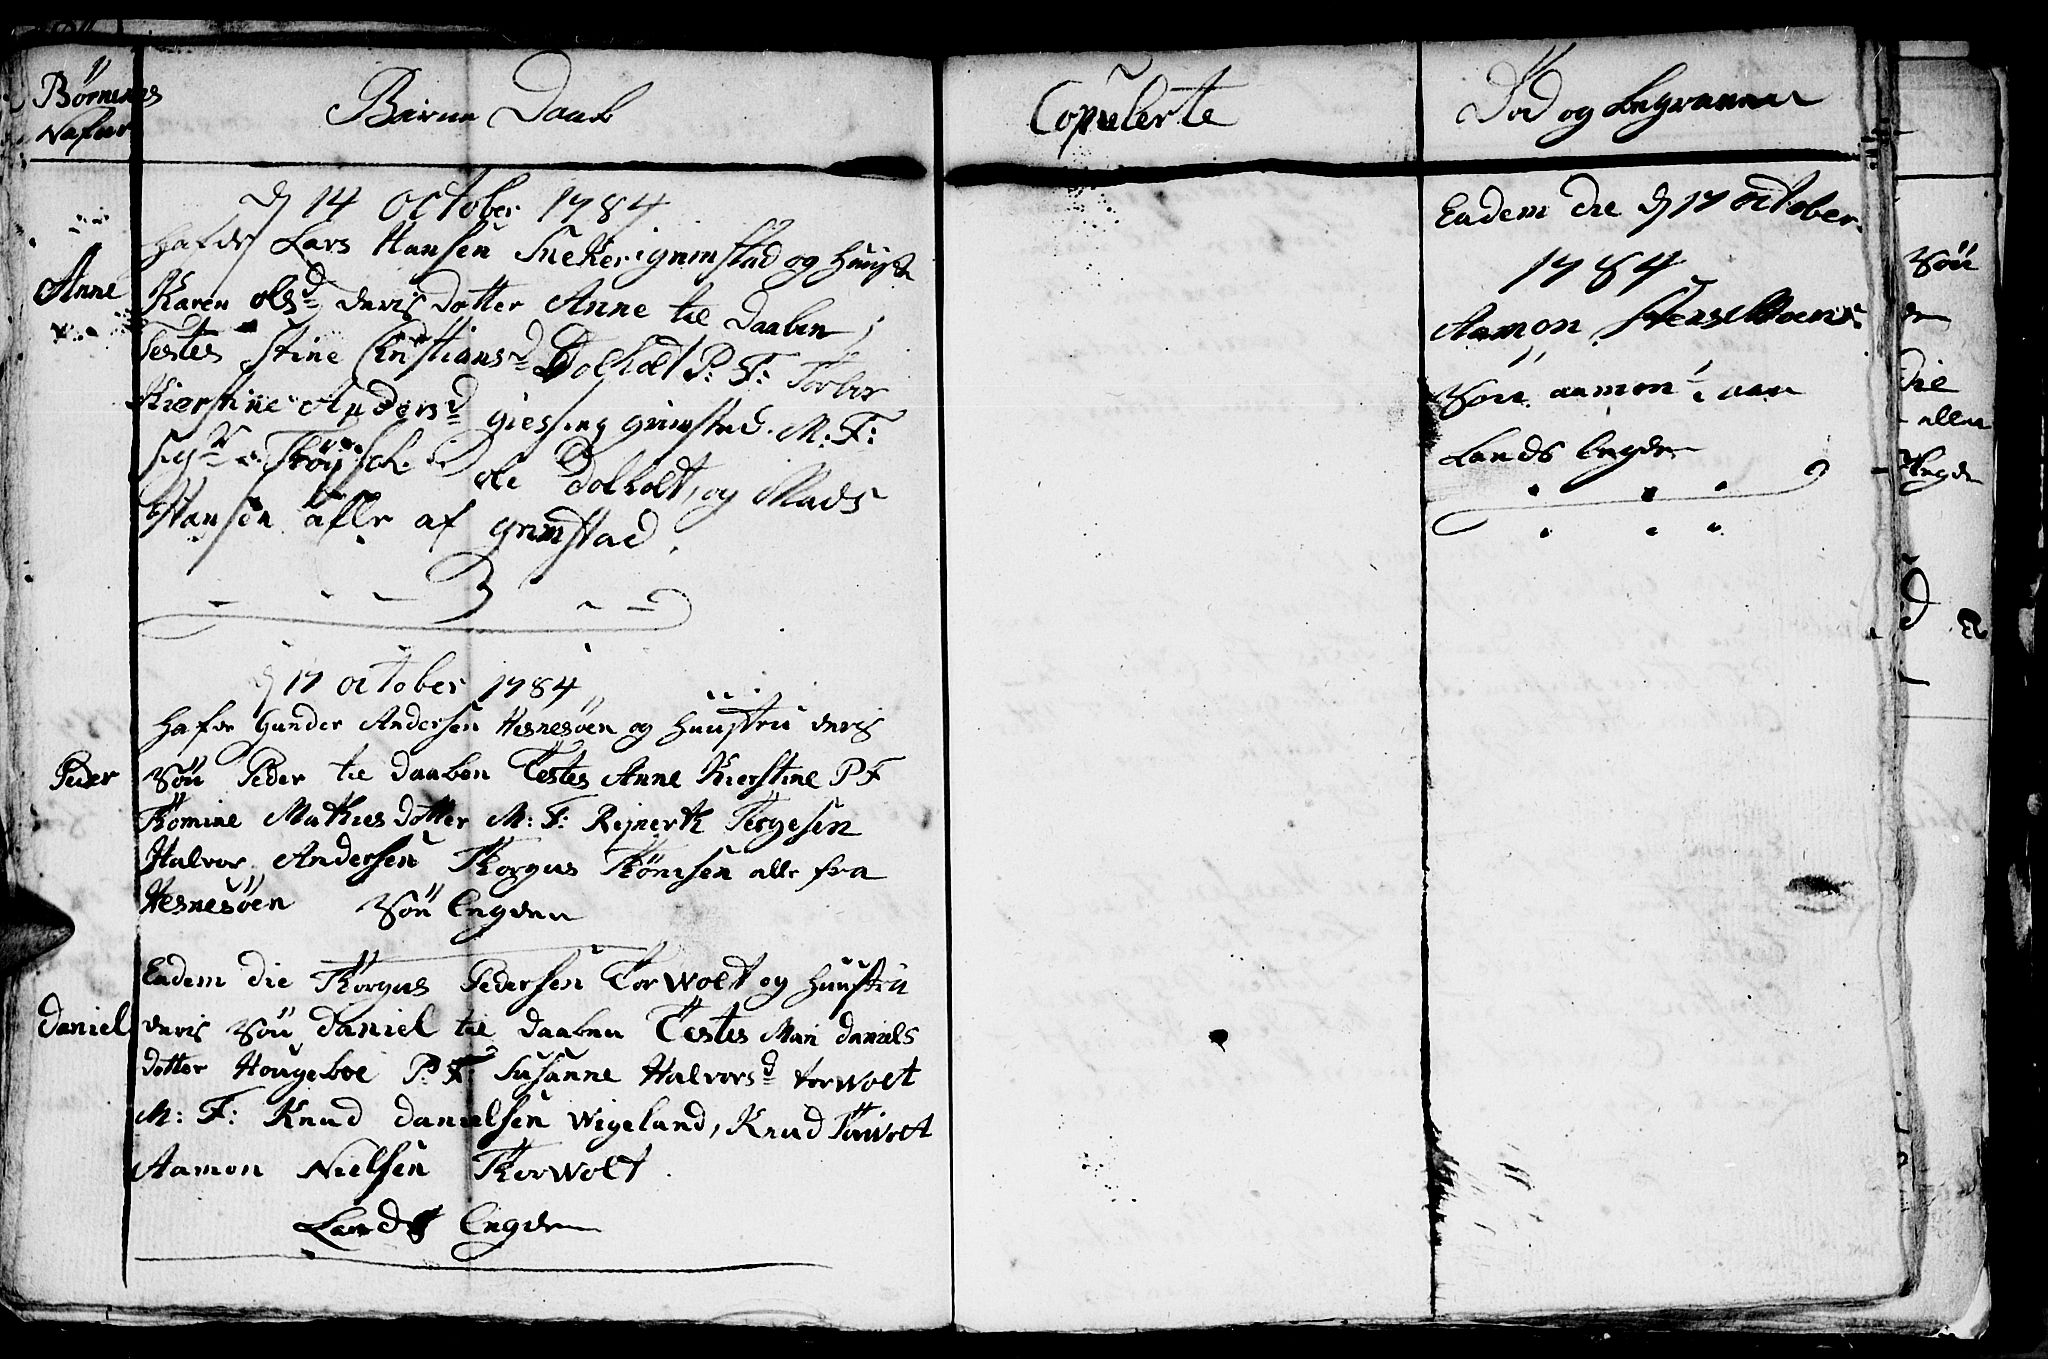 Børnenes
Nafne
Børne Daab
Copulerte
Død og begravne
d 14 October 1784
hafde Lars Hansen Snekker i grimstad og hustru
Anne
Karen olsd deris dotter Anne til daaben
Testes Stine Christiansd Dolholt P: F:
Kierstine Andersd giessing grimstad. M: F:
ole Dolholt, og Mads
Hansen alle af grimstad
d 17 october 1784
hafde gunder Andersen Hesnesøen og huustru deris
Peder
Søn Peder til daaben Testes Anne Kierstine P F
Tomine Mathies dotter M: F: Rejnerth Tergesen
Halvor Andersen Torgus Tönisen alle fra
Hesnesöen Søe Legden
Eadem die Törgus Pedersen Torwolt og huustru
Daniel
deris Søn Daniel til daaben Testes Mari Daniels
dotter Hougeboe P: F: Susanne Halvorsd torwolt
M: F: Knud Danielsen Wigeland, Knud
Aamon Nielsen Torwolt
Lands Legden
Eadem die d 17 october
1784
Aamon
Søn aamon
Lands Legden